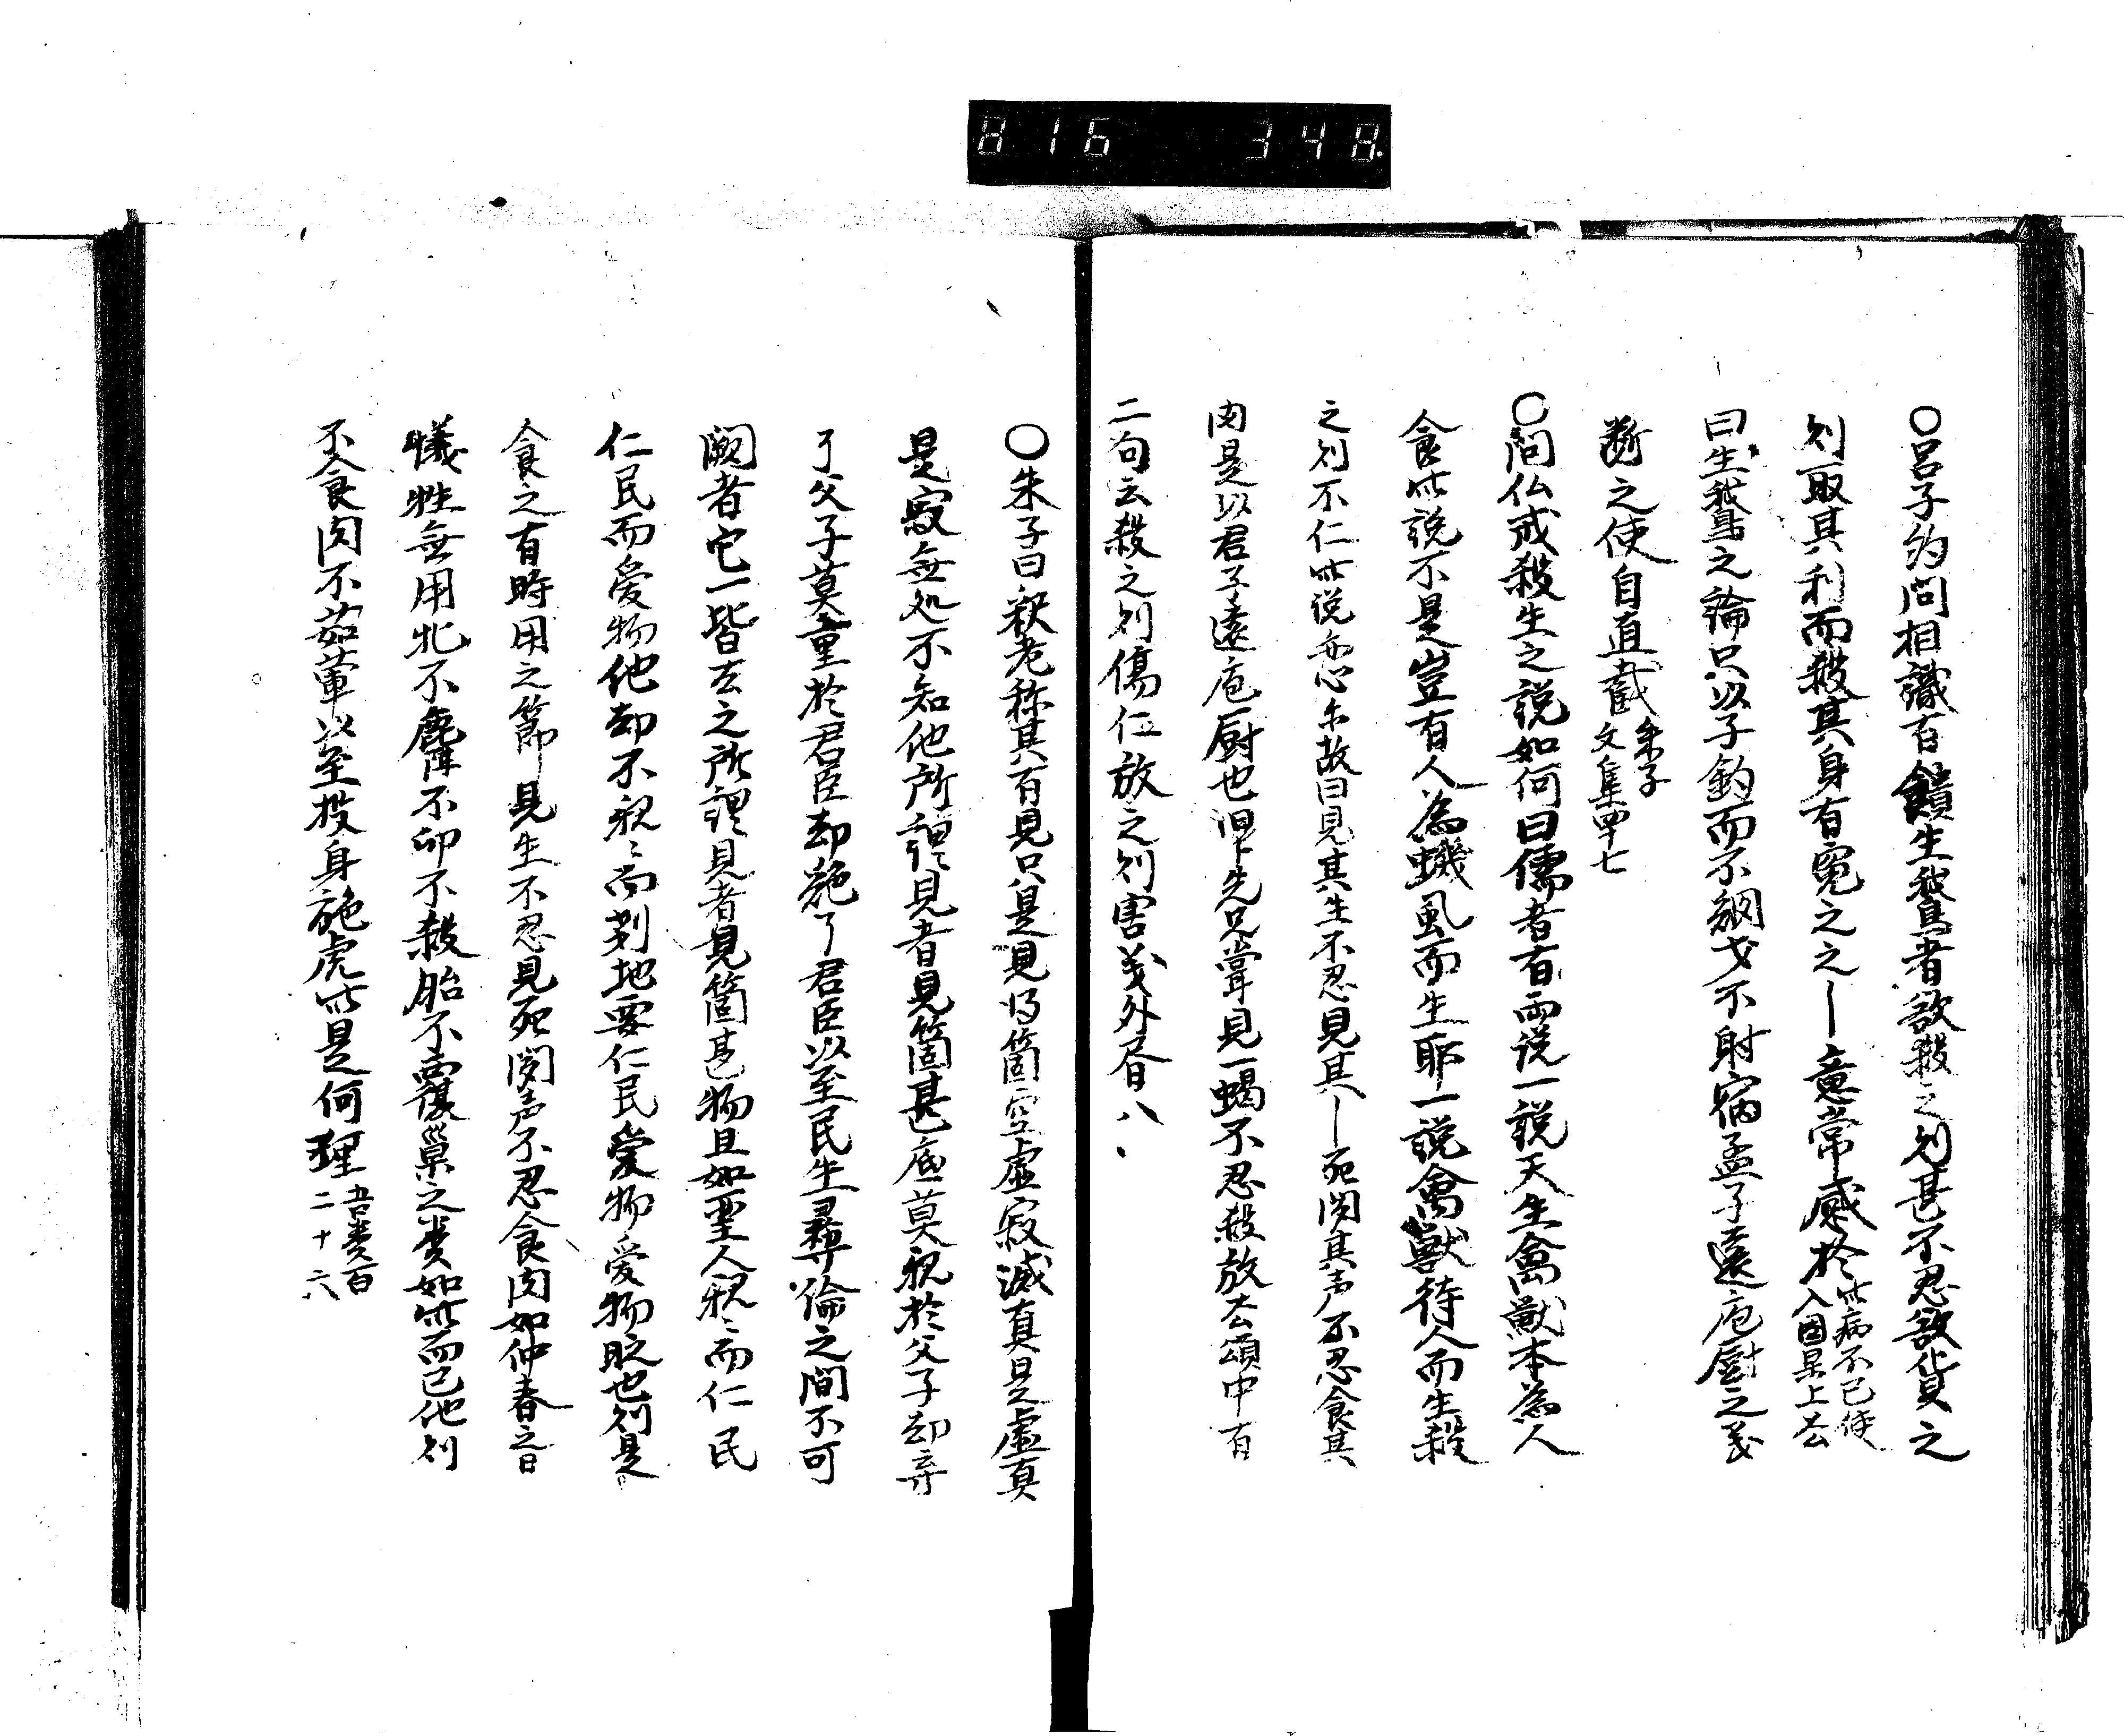 816 348
○呂子約問相識有饋生鵞者欲殺之則甚不忍欲貨之
則取其利而殺其身有寃之之｜意常感於此病不已使入因果上去
曰生鵞之論只以子釣而不綱弋不射宿孟子遠庖厨之義
断之使自直截朱子文集四十七
○問仏戒殺生之説如何曰儒者有両説一説天生禽獣本為人
食此説不是豈有人為蟣虱而生耶一説禽獣待人而生殺
之則不仁此説亦不故曰見其生不忍見其｜死聞其声不忍食其
肉是以君子遠庖厨也旧先兄嘗見一蝎不忍殺放去頌中有
二句云殺之則傷仁放之則害義外昏八
○朱子曰釈老称其有見只是見得箇空虚寂滅真是虚真
是寂無処不知他所謂見者見箇甚底莫親於父子却弃
了父子莫重於君臣却絶了君臣以至民生彝倫之間不可
闕者它一皆去之所謂見者見箇甚物且如聖人親々而仁民
仁民而愛物他却不親々而剗地要仁民愛物愛物時也則是
食之有時用之節見生不忍見死聞声不忍食肉如仲春之日
犠牲無用牝不麛不卵不殺胎不覆巣之類如此而已他則
不食肉不茹葷以至投身施虎此是何理語類百二十六